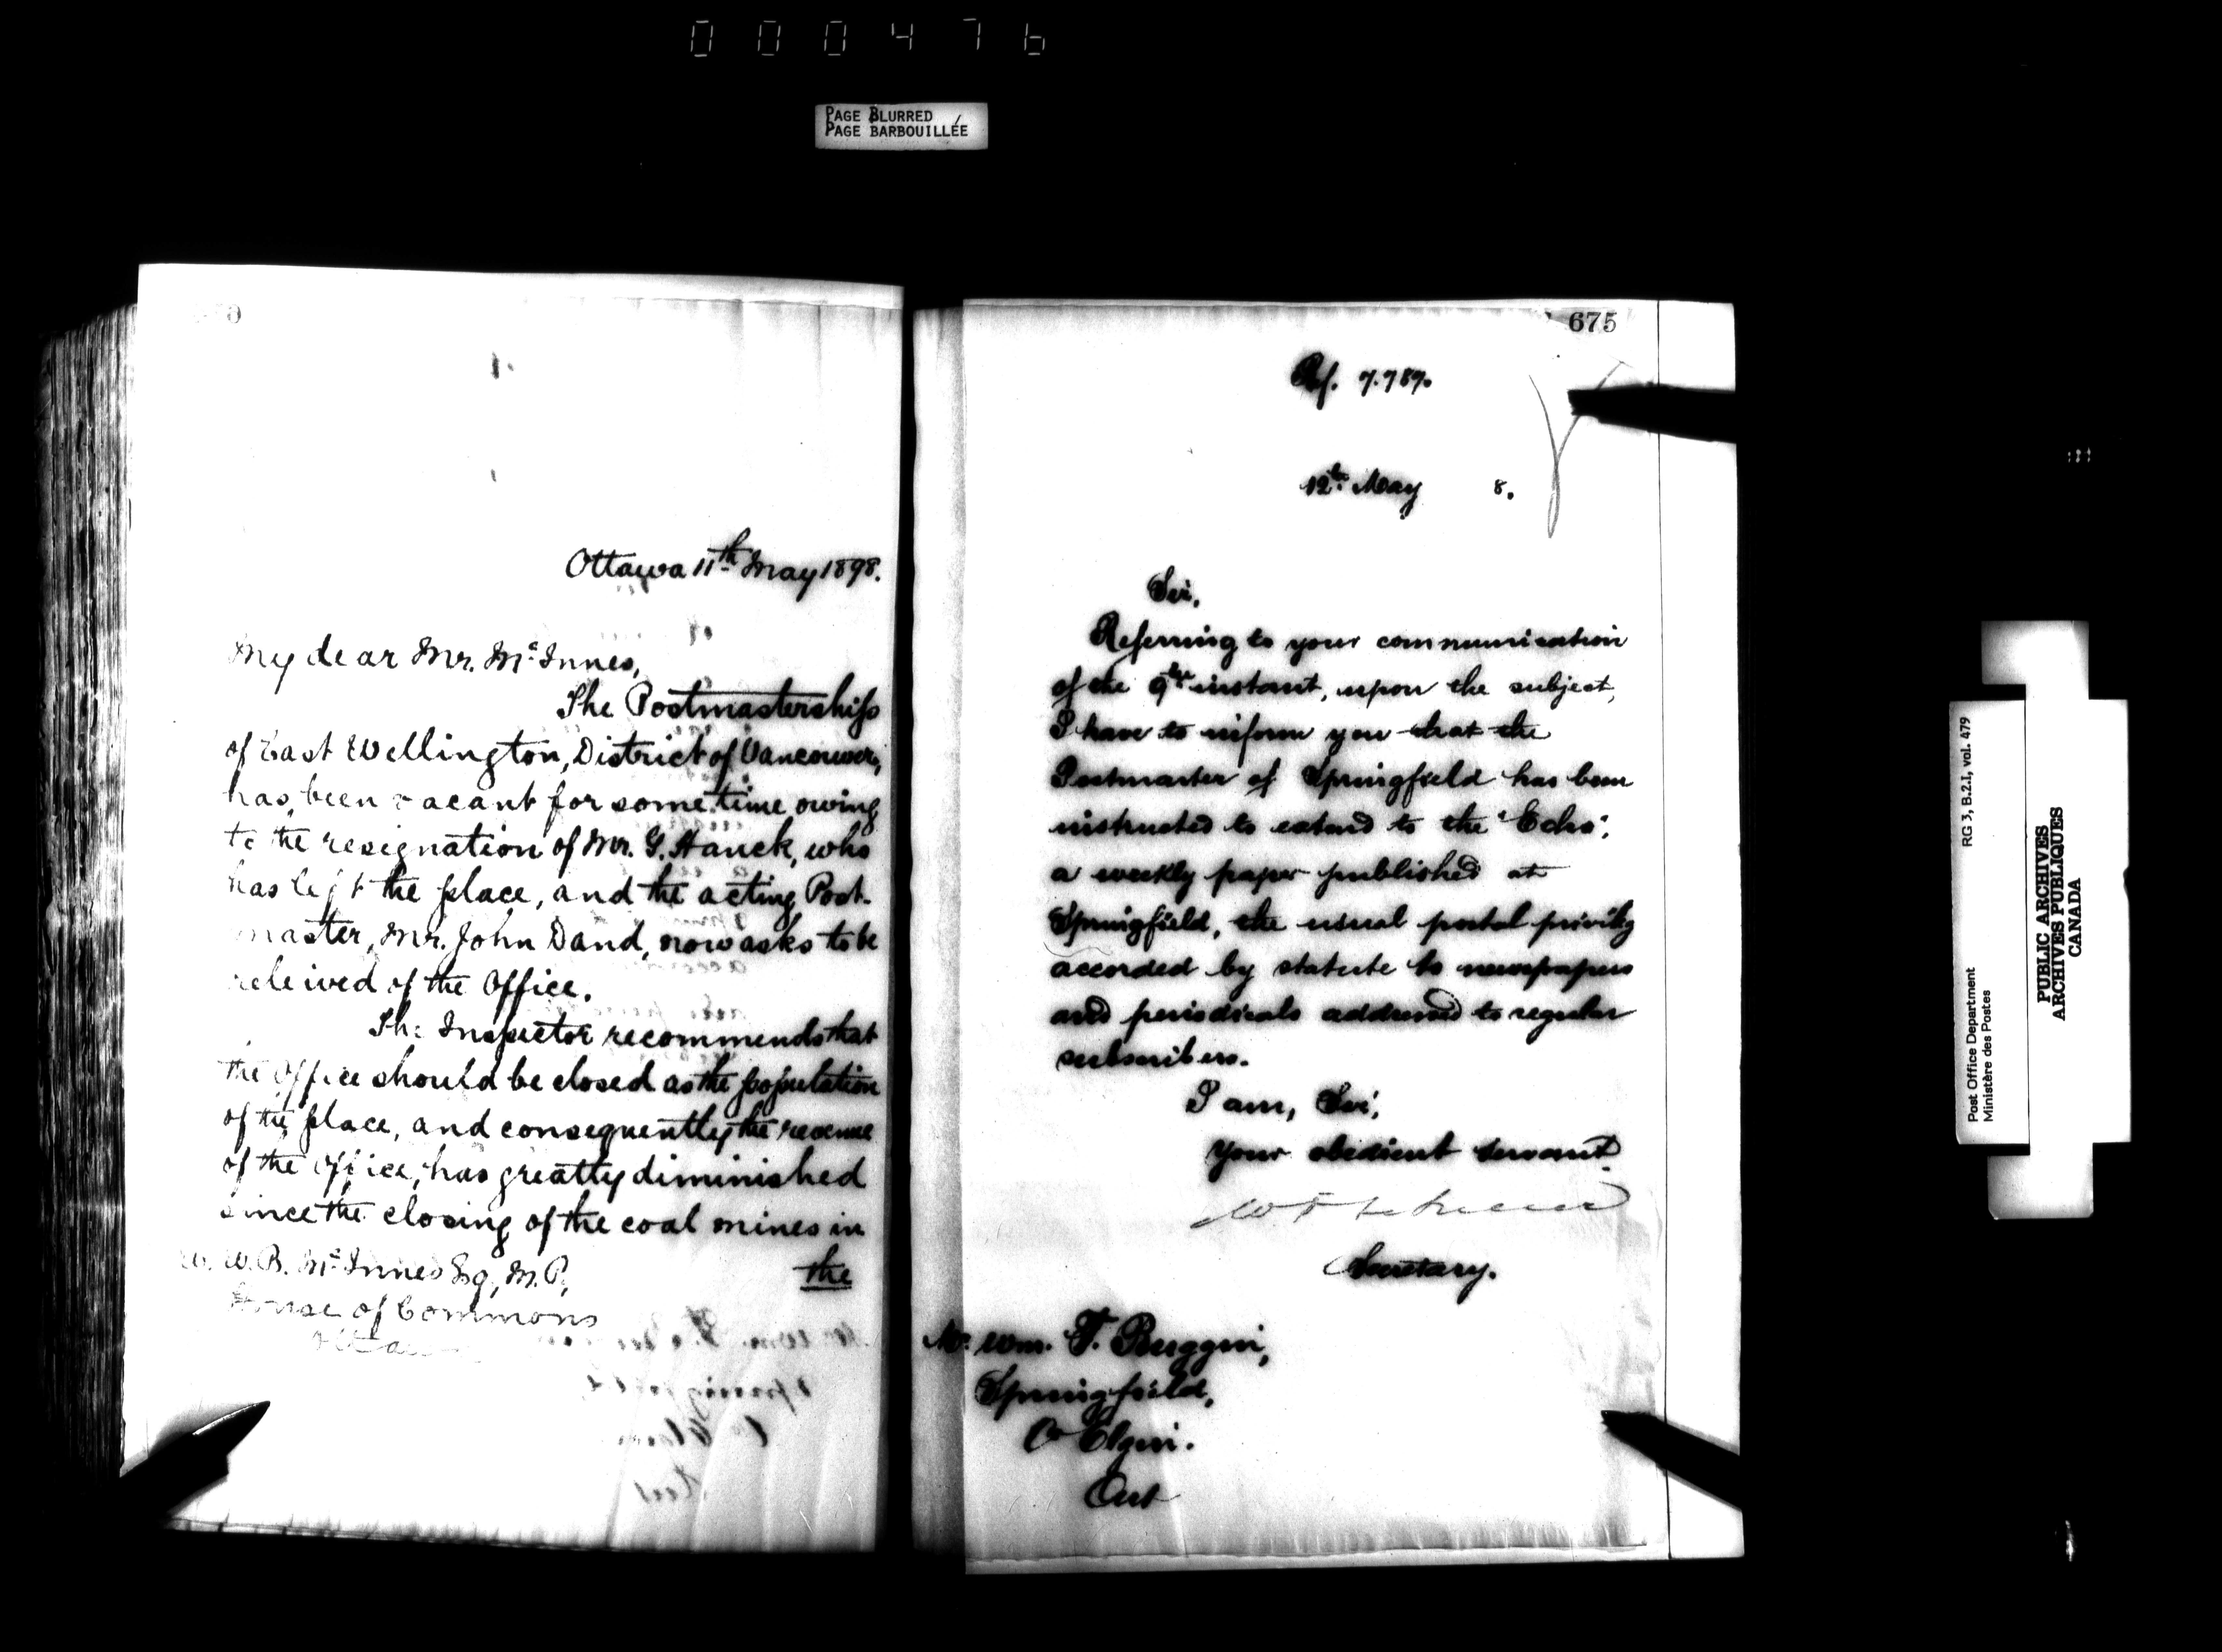 000476
PAGE BLURRED
PAGE BARBOUILLÉE
Ottawa 11th May 1898.
My dear Mr. McInnes,
The Postmastership
of East Wellington, District of Vancouver,
has been vacant for some time owing
to the resignation of Mr. G. Hauck, who
has left the place, and the acting Post-
master, Mr. John Dand, now asks to be
releived of the Office.
The Inspector recommends that
the Office should be closed as the population
of the place, and consequently the revenue
of the Office, has greatly diminished
since the closing of the coal mines in
the
W. W. B. McInnes Esq, M. P.,
House of Commons
Ottawa
675
Rf. 7.787.
12th May 8.
Sir,
Referring to your communication
of the 9th instant, upon the subject,
I have to inform you that the
Postmaster of Springfield has been
instructed to extend to the "Echo",
a weekly paper published at
Springfield, the usual postal privilege
accorded by statute to newspapers
and periodicals addressed to regular
subscribers.
I am, Sir,
Your obedient servant
Secretary.
Mr. Wm. F. Buggin,
Springfield,
Co Elgin.
Ont
Post Office Department
Ministère des Postes
RG 3, B.2.1, vol. 479
PUBLIC ARCHIVES
ARCHIVES PUBLIQUES
CANADA